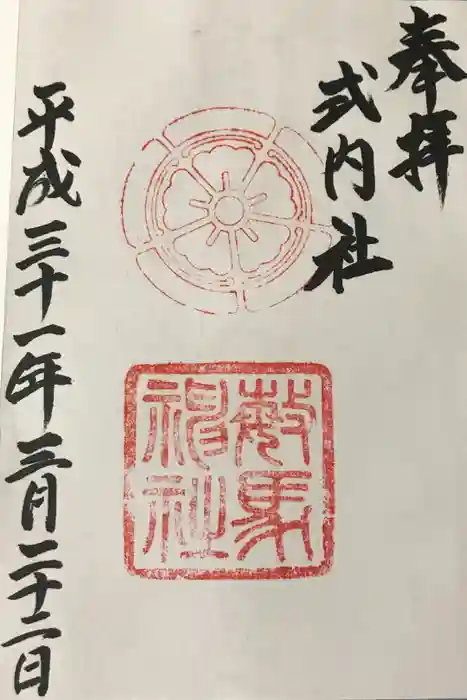 奉拝
式内社
藪馬
神社
平成三十一年三月二十二日